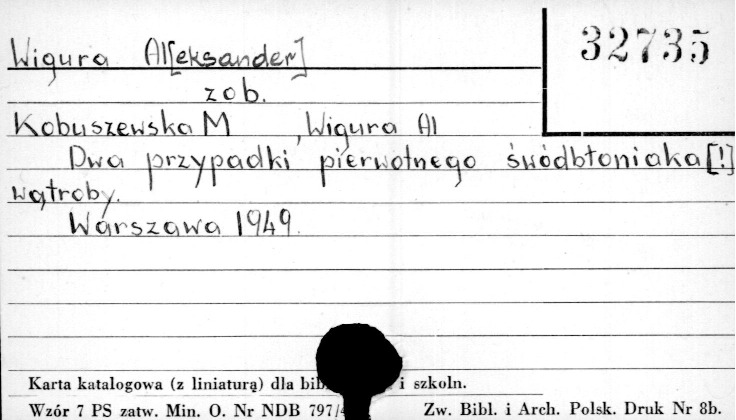 Wigura Al[eksander]
32735
zob.
Kobuszewska M , Wigura Al
Dwa przypadki pierwotnego śródbłoniaka [!]
wątroby.
Warszawa 1949.
Karta katalogowa (z liniaturą) dla i szkoln.
Wzór 7 PS zatw. Min. O. Nr NDB 797/ Zw. Bibl. i Arch. Polsk. Druk Nr 8b.